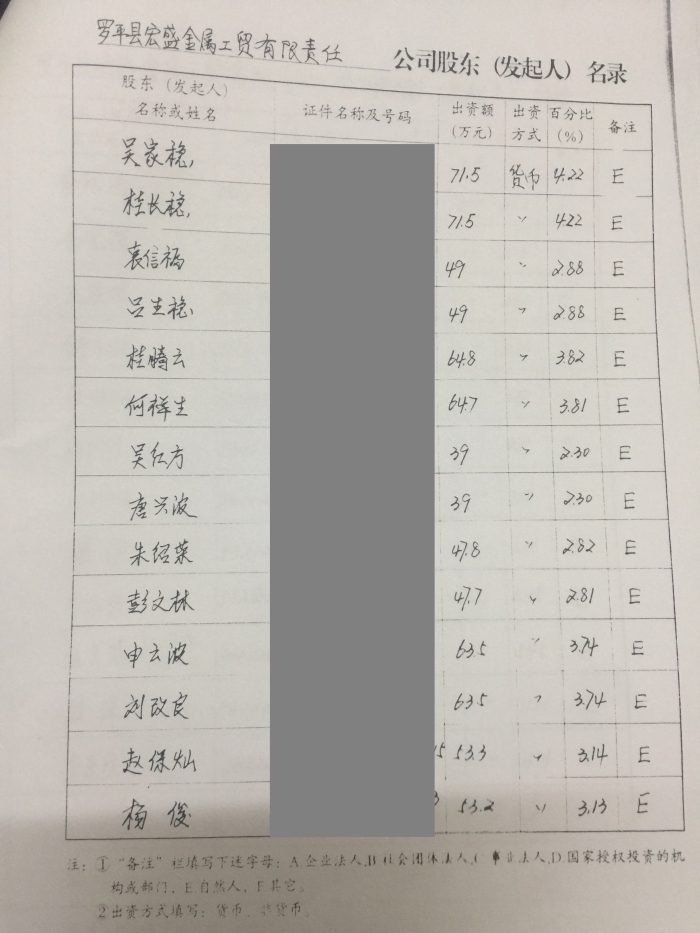 罗平县宏盛金属工贸有限责任 公司股东（发起人）名录
股东（发起人）名称或姓名 证件名称及号码 出资额（万元） 出资方式 百分比（%） 备注
吴家稳 71.5 货币 4.22 E
桂长稳 71.5 〃 4.22 E
袁信福 49 〃 2.88 E
吕生稳 49 〃 2.88 E
桂腾云 64.8 〃 3.82 E
何祥生 64.7 〃 3.81 E
吴红方 39 〃 2.30 E
唐兴波 39 〃 2.30 E
朱绍荣 47.8 〃 2.82 E
彭文林 47.7 〃 2.81 E
申云波 63.5 〃 3.74 E
刘改良 63.5 〃 3.74 E
赵保灿 5 53.3 〃 3.14 E
杨俊 3 53.2 〃 3.13 E
注：①“备注”栏填写下述字母：A.企业法人.B.社会团体法人.C.事业法人.D.国家授权投资的机
构或部门、E.自然人、F.其它。
②出资方式填写：货币、非货币。